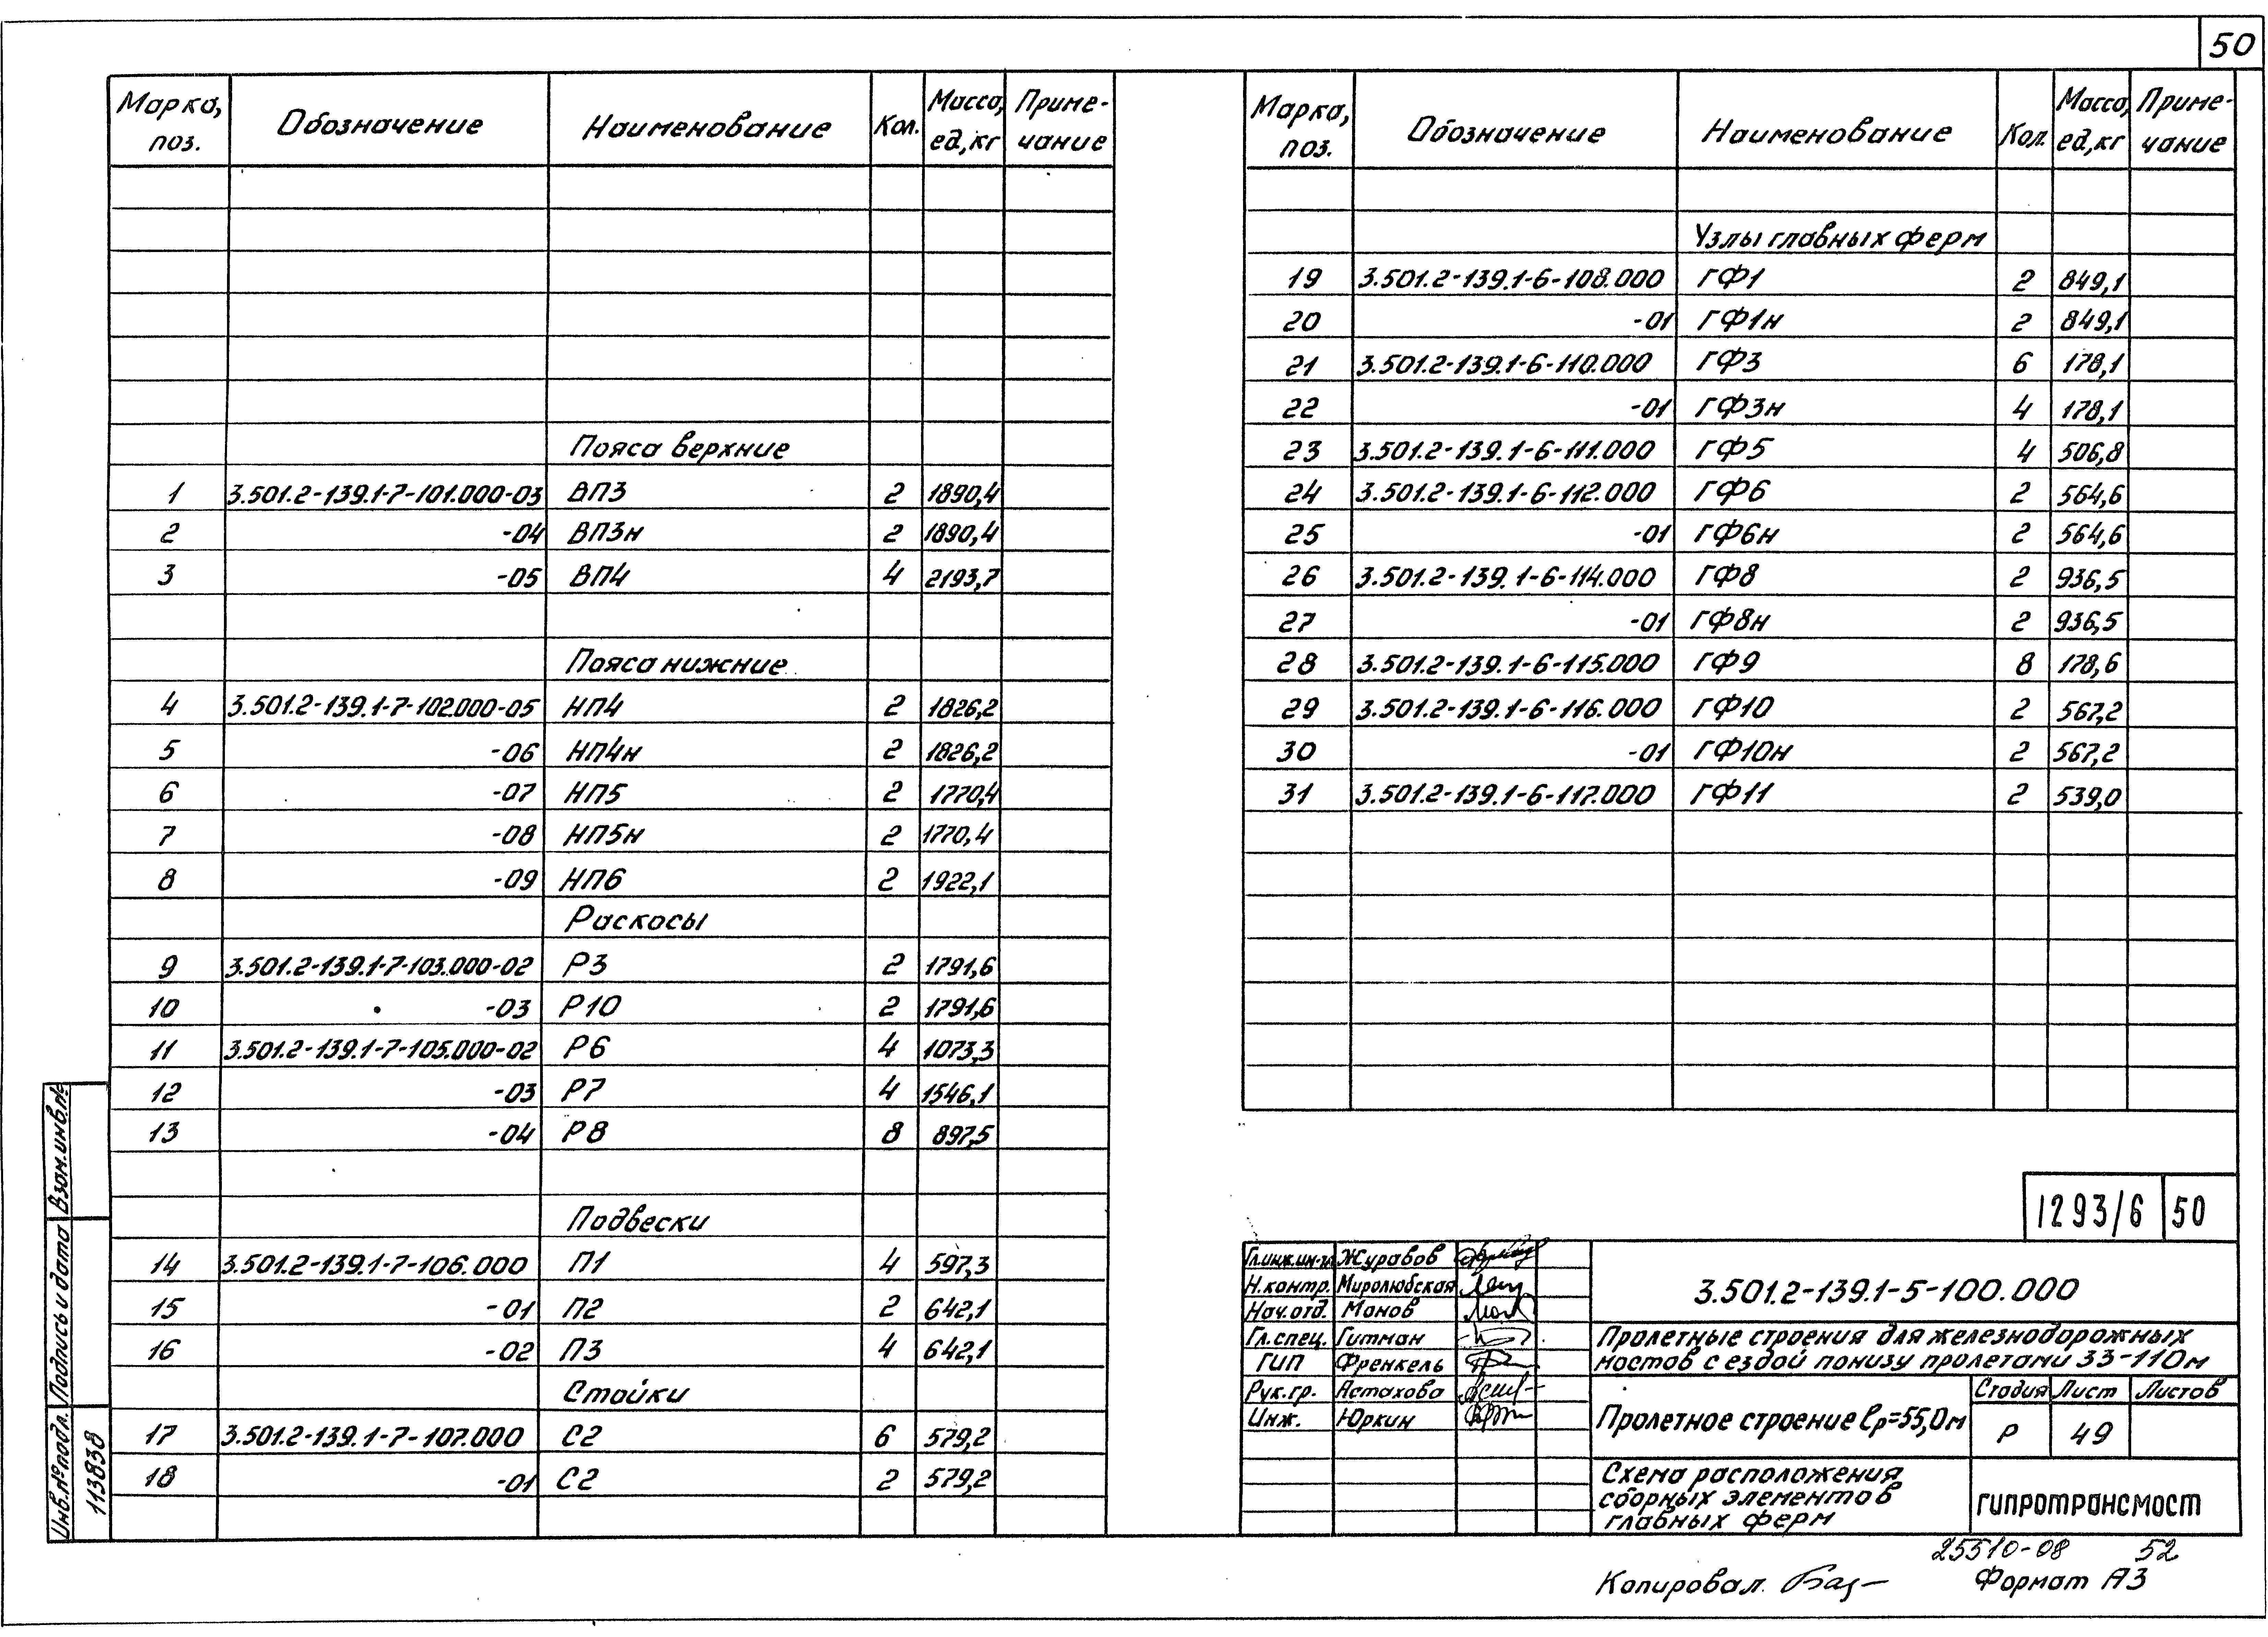 50
Марка, поз. Обозначение Наименование Кол. Масса, ед,кг Приме- чание
Пояса верхние
1 3.501.2-139.1-7-101.000-03 ВП3 2 1890,4
2 -04 ВП3н 2 1890,4
3 -05 ВП4 4 2193,7
Пояса нижние
4 3.501.2-139.1-7-102.000-05 НП4 2 1826,2
5 -06 НП4н 2 1826,2
6 -07 НП5 2 1770,4
7 -08 НП5н 2 1770,4
8 -09 НП6 2 1922,1
Раскосы
9 3.501.2-139.1-7-103.000-02 Р3 2 1791,6
10 -03 Р10 2 1791,6
11 3.501.2-139.1-7-105.000-02 Р6 4 1073,3
12 -03 Р7 4 1546,1
13 -04 Р8 8 897,5
Подвески
14 3.501.2-139.1-7-106.000 П1 4 597,3
15 -01 П2 2 642,1
16 -02 П3 4 642,1
Стойки
17 3.501.2-139.1-7-107.000 С2 6 579,2
18 -01 С2 2 579,2
Марка, поз. Обозначение Наименование Кол. Масса, ед,кг Приме- чание
Узлы главных ферм
19 3.501.2-139.1-6-108.000 ГФ1 2 849,1
20 -01 ГФ1н 2 849,1
21 3.501.2-139.1-6-110.000 ГФ3 6 178,1
22 -01 ГФ3н 4 178,1
23 3.501.2-139.1-6-111.000 ГФ5 4 506,8
24 3.501.2-139.1-6-112.000 ГФ6 2 564,6
25 -01 ГФ6н 2 564,6
26 3.501.2-139.1-6-114.000 ГФ8 2 936,5
27 -01 ГФ8н 2 936,5
28 3.501.2-139.1-6-115.000 ГФ9 8 178,6
29 3.501.2-139.1-6-116.000 ГФ10 2 567,2
30 -01 ГФ10н 2 567,2
31 3.501.2-139.1-6-117.000 ГФ11 2 539,0
1293/6 50
Гл.инж.ин-та Журавов
Н.контр. Миролюбская
Нач.отд. Монов
Гл.спец. Гитман
ГИП Френкель
Рук.гр. Астахова
Инж. Юркин
3.501.2-139.1-5-100.000
Пролетные строения для железнодорожных
мостов с ездой понизу пролетами 33-110м
Пролетное строение lр=55,0м
Стадия Лист Листов
Р 49
Схема расположения
сборных элементов
главных ферм
гипротрансмост
25510-08 52
Копировал Формат А3
Взам.инв.№
Подпись и дата
Инв.№подл.
113838